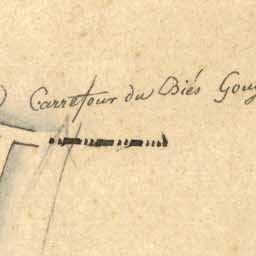 Carrefour du Biés Goug